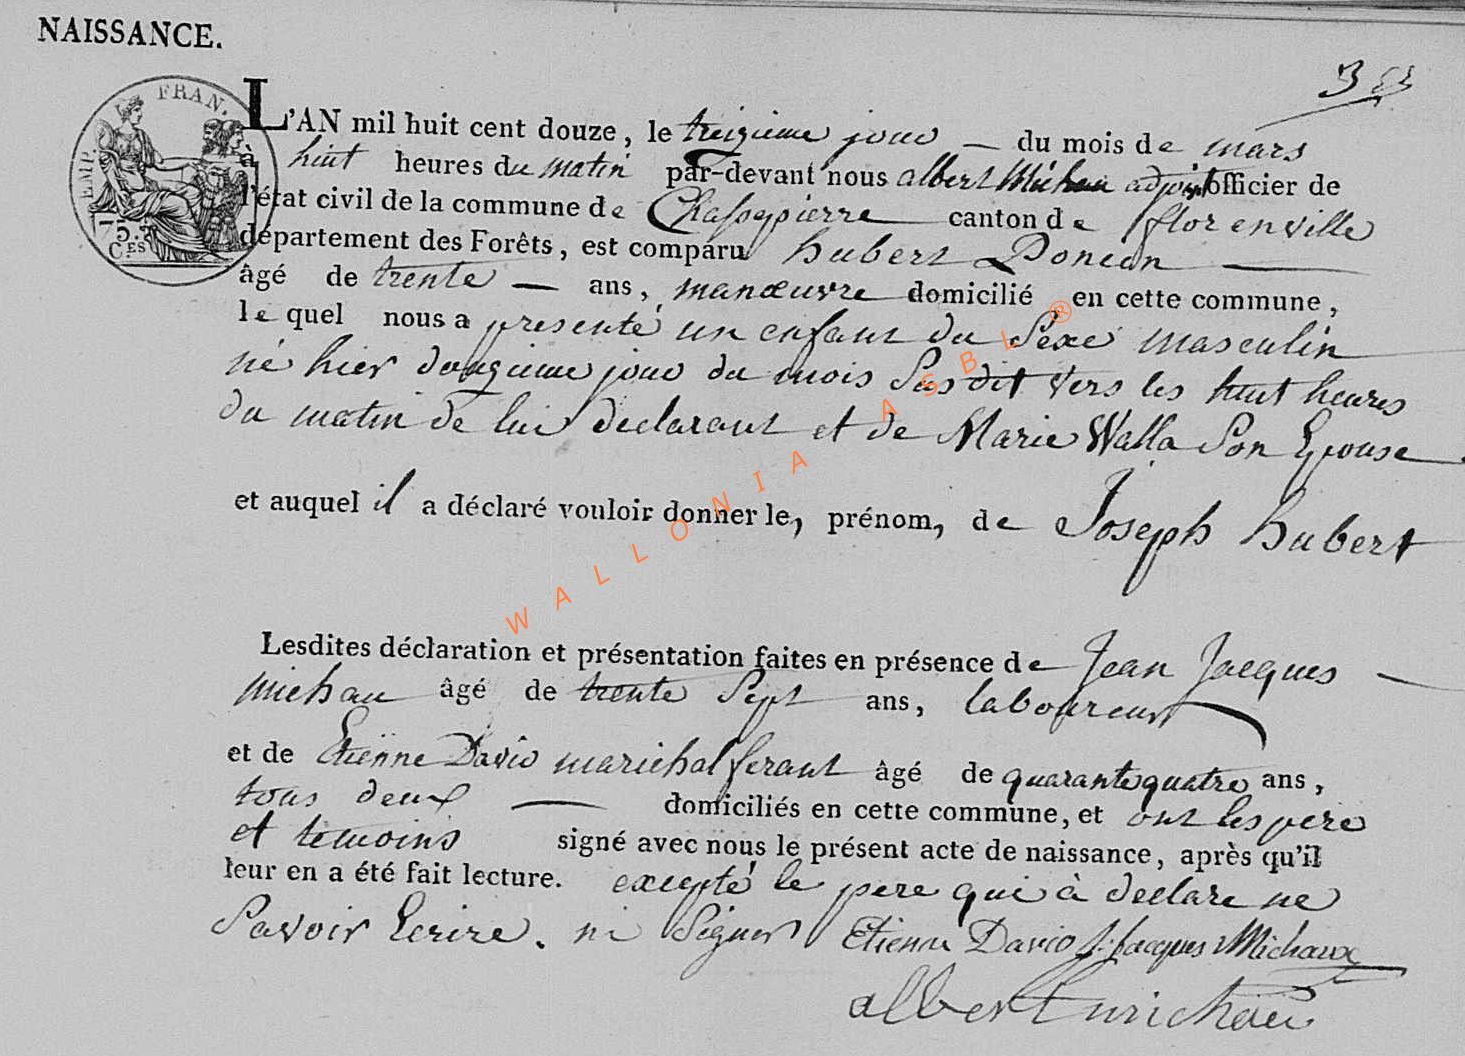 NAISSANCE.
FRAN.
EMP.
75.
C.ES
L'AN mil huit cent douze, le treizieme jour — du mois de mars
à huit heures du matin par-devant nous albert Michau adjoint officier de
l'état civil de la commune de Chassepierre canton de florenville
département des Forêts, est comparu hubert Doncan —
âgé de trente — ans, manœuvre domicilié en cette commune,
le quel nous a presenté un enfant du Sexe masculin
né hier douzieme jour du mois Susdit vers les huit heures
du matin de lui declarant et de Marie Walla Son Epouse
et auquel il a déclaré vouloir donner les prénoms de Joseph hubert
Lesdites déclaration et présentation faites en présence de Jean Jacques —
michau âgé de trente Sept ans, laboureur
et de Etienne David marichal ferant âgé de quarante quatre ans,
tous deux — domiciliés en cette commune, et ont les pere
et temoins signé avec nous le présent acte de naissance, après qu'il
leur en a été fait lecture. excepté le pere qui à declare ne
Savoir Ecrire. ni Signer Etienne David J. Jacques Michaux
albert michau
WALLONIA ASBL ®